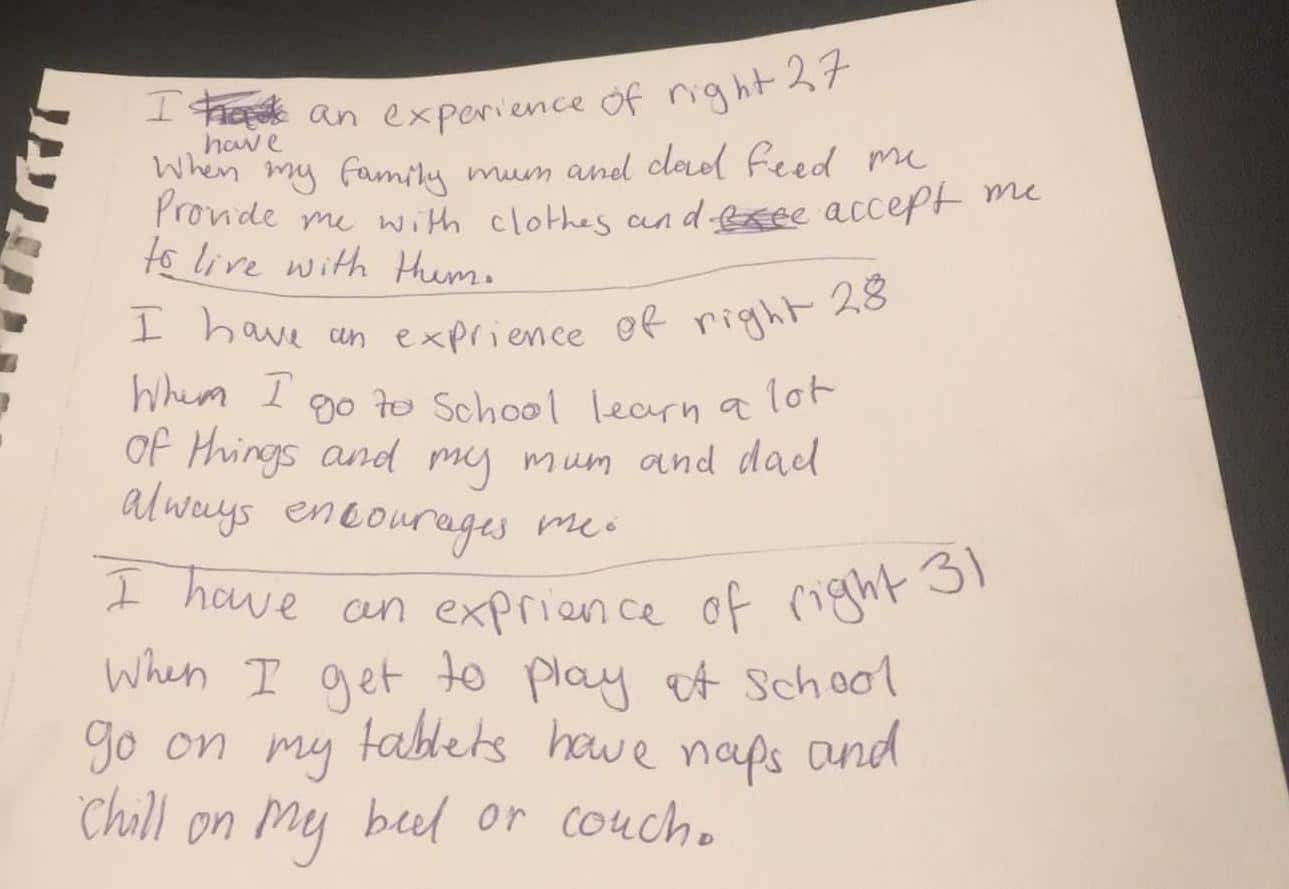 I have an experience of right 27
When my family mum and dad feed me
Provide me with clothes and accept me
to live with them.
I have an exprience of right 28
When I go to School learn a lot
of things and my mum and dad
always encourages me.
I have an exprience of right 31
When I get to play at school
go on my tablets have naps and
chill on my bed or couch.